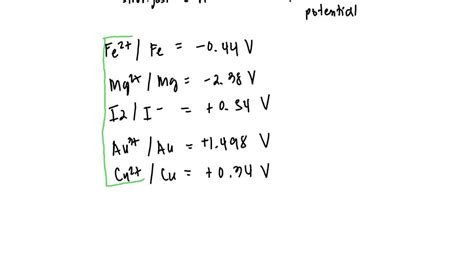 potential
Fe²⁺ / Fe = -0.44 V
Mg²⁺ / Mg = -2.38 V
I2 / I⁻ = +0.54 V
Au³⁺ / Au = +1.498 V
Cu²⁺ / Cu = +0.34 V